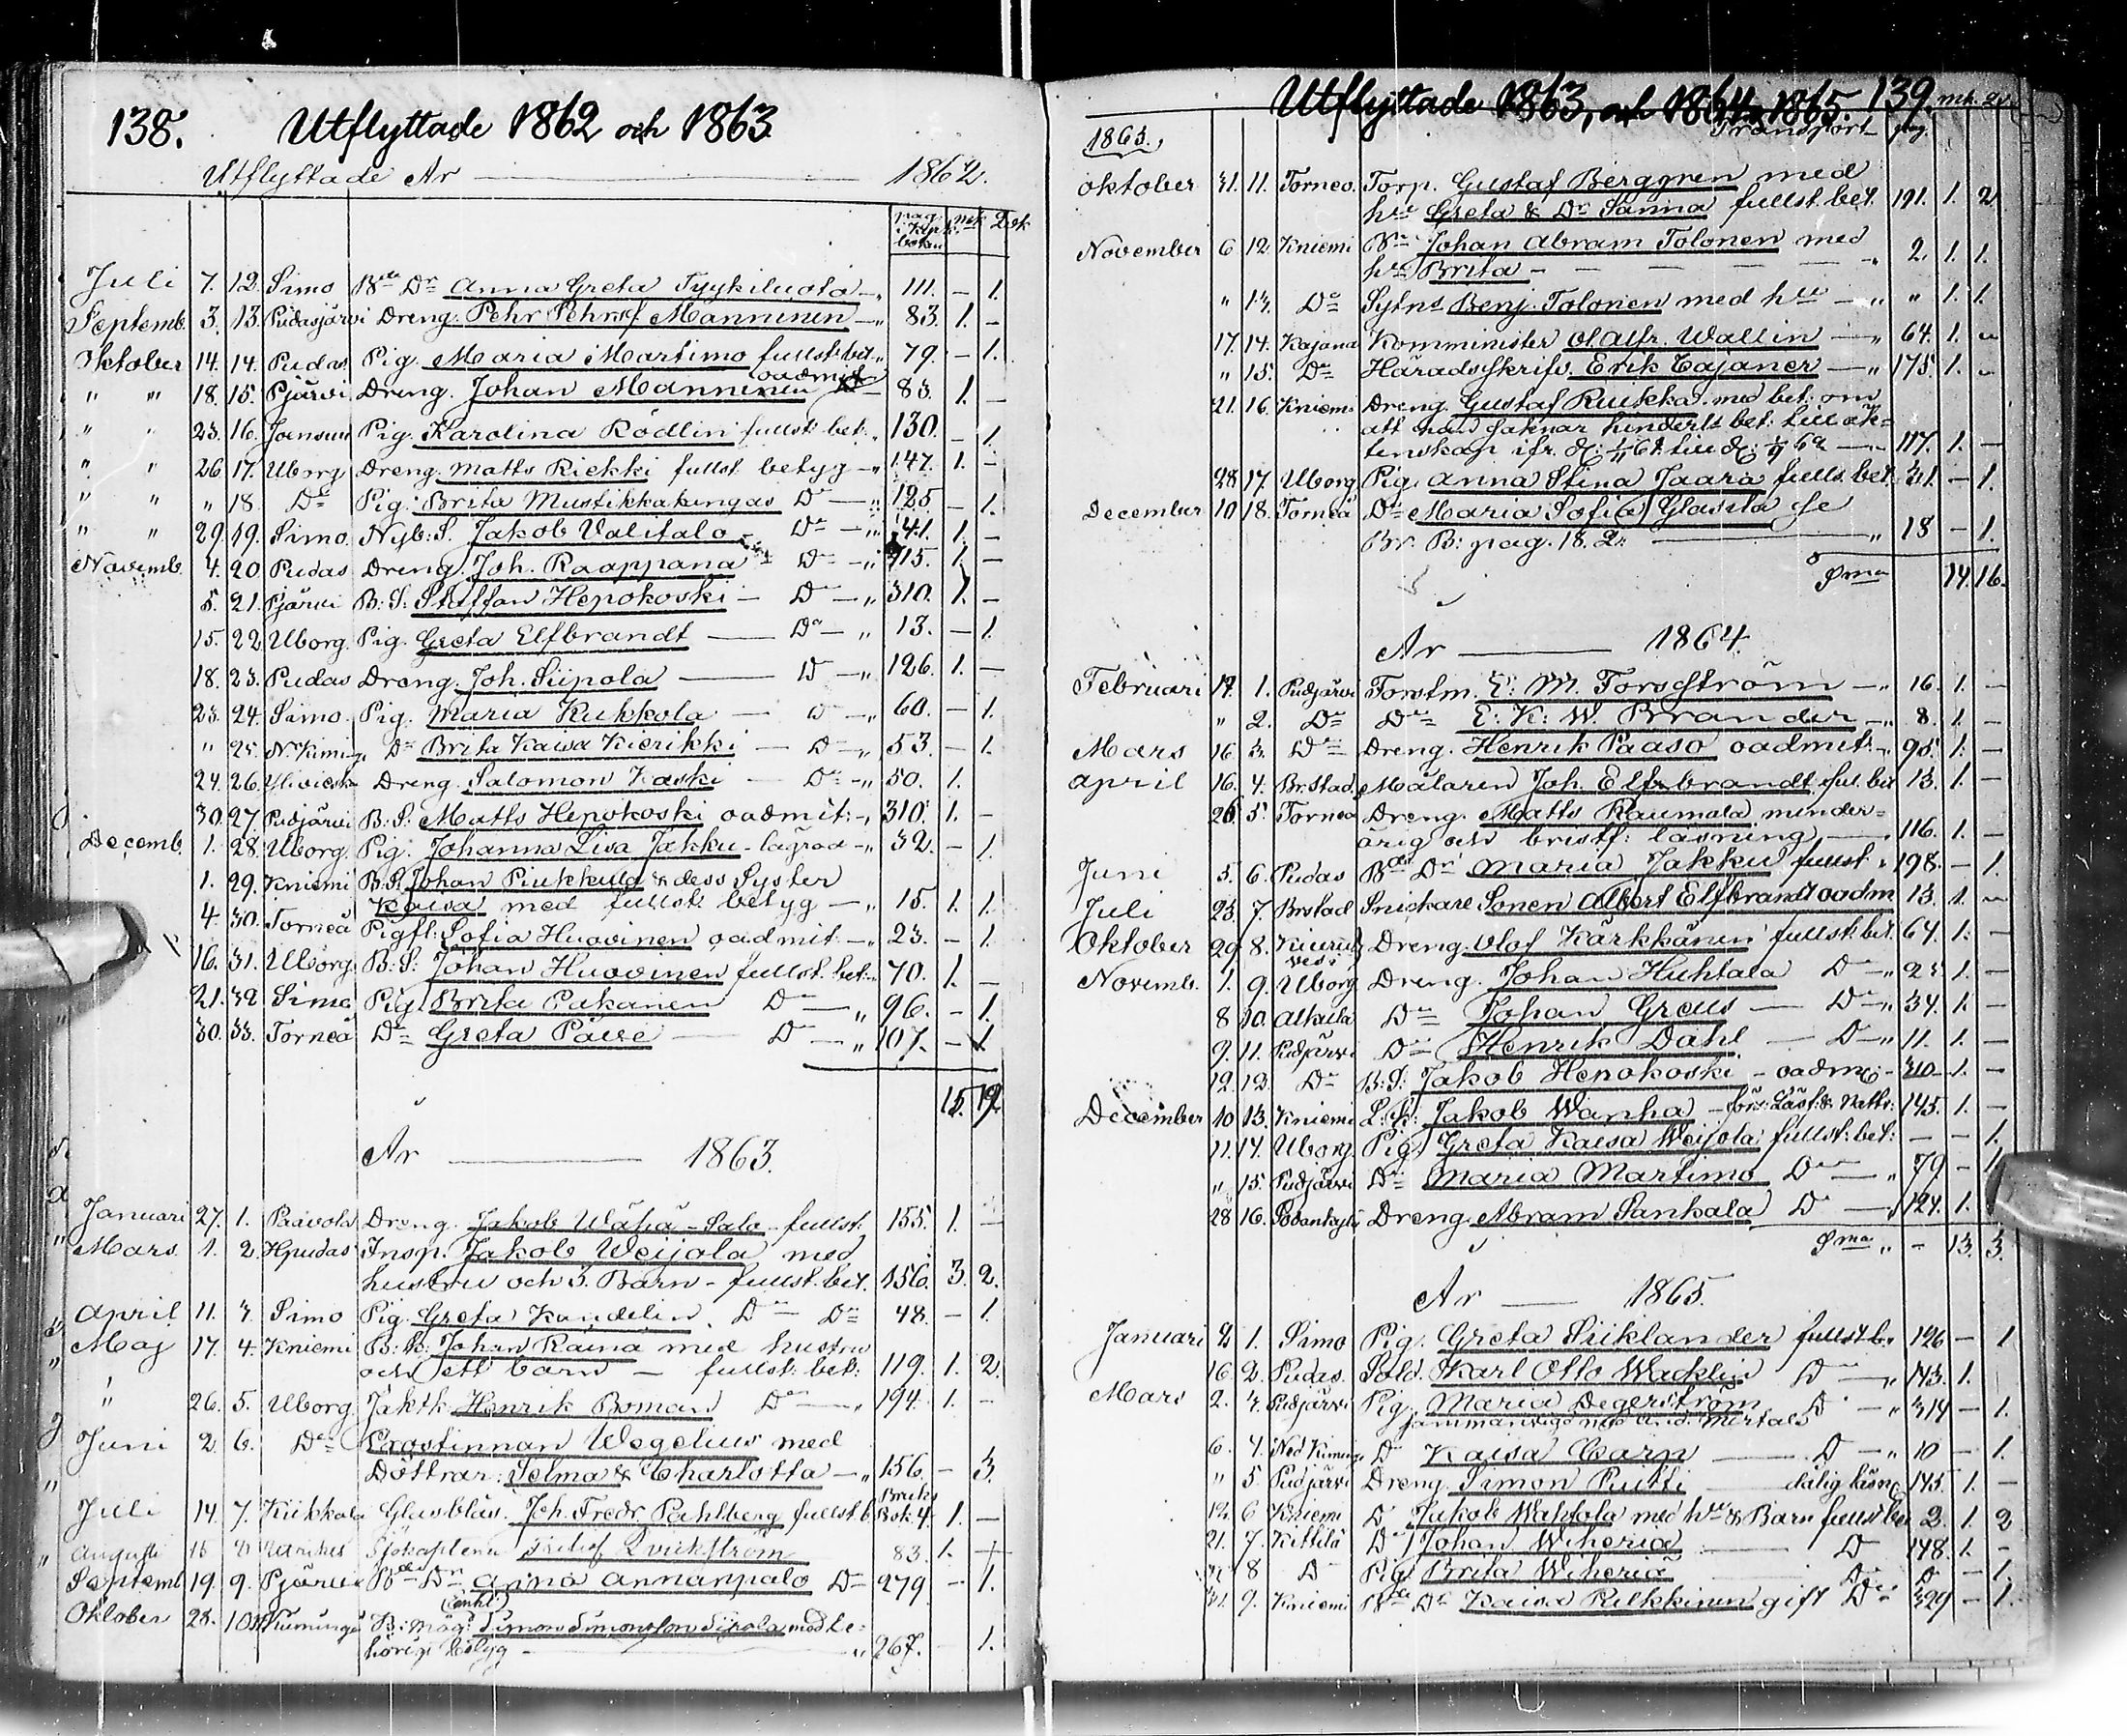 138. Utflyttade 1862 och 1863
Utflyttade År — 1862.
pag. i Kyrk. boken mk Qvk
Juli 7. 12. Simo Bde Dr Anna Greta Tyykiluoto — 111. — 1.
Septemb. 3. 13. Pudasjärvi Dreng. Pehr Pehrsf Manninen — 83. 1. —
Oktober 14. 14. Pudas Pig. Maria Martimo fullst: bet. 79. — 1.
" " 18. 15. Pjärvi Dreng. Johan Manninen oadmit 83. 1. —
" " 23. 16. Joensuu Pig. Karolina Rödlin fullst: bet: 130. — 1.
" " 26 17. Uborg Dreng. Matts Riekki fullst. betyg — 147. 1. —
" " " 18 Do Pig: Brita Mustikkakangas Do — 125 — 1.
" " 29. 19. Simo. Nyb: S. Jakob Valitalo Do — 41. 1. —
Novemb. 4. 20 Pudas Dreng. Joh. Raappana Do — 415. 1. —
5. 21. Pjärvi B: S: Staffan Hepokoski — Do — 310. 1. —
15. 22 Uborg. Pig. Greta Elfbrandt — Do — 13. — 1.
18. 23. Pudas Dreng. Joh. Siipola — D — 126. 1. —
23. 24. Simo. Pig. Maria Kukkola — D — 60. — 1.
" 25. N. Kiming Do Brita Kaisa Kierikki — D — 53. — 1.
24. 26. Ylivieska Dreng. Salomon Kaski — Do — 50. 1.
30. 27. Pudjärvi B: S. Matts Hepokoski oadmit: — 310. 1. —
Decemb. 1. 28. Uborg. Pig. Johanna Lisa Jakku — 32. — 1.
1. 29. Kniemi B: S. Johan Piukkula & dess Syster
Kaisa med fullst: betyg — 15. 1. 1.
4. 30. Torneå Pigfl: Sofia Huovinen oadmit — 23. — 1.
16. 31. Uborg. B: S: Johan Huovinen fullst. bet. 70. 1. —
21. 32 Simo Pig. Brita Pakanen D — 96. — 1.
30. 33. Torneå Do Greta Päive — D — 107. — 1.
15. 19.
År — 1863.
Januari 27. 1. Paavola Dreng. Jakob Wähä-Salo fullst: 155. 1. —
" Mars. 1. 2. Hpudas Insp. Jakob Weijola med
hustru och 3. Barn - fullst. bet. 156. 3. 2.
April 11. 3. Simo Pig. Greta Kandelin Do Do 48. — 1.
Maj 17. 4. Kniemi B: k: Johan Raina med hustru
och ett barn — fullst: bet: 119. 1. 2.
" 26. 5. Uborg Henrik Boman Do — 194. 1. —
Juni 2 6. Do Prostinnan Wegelius med
Döttrar: Selma & Charlotta — 156. — 3.
Juli 14. 7. Kukkola Glasblås. Joh. Fredr. Pahlberg fullst. b Bruks Bok. 4. 1. —
Augusti 15 8 Sjökaptenn Qvickström 83. 1. —
Septemb 19. 9. Pjärvi Bde Dr Anna Annanpalo Do 279 — 1.
Oktober 28. 10. Kiminge B: måg: (enkl.) Simon Simonsson Siipola med be-
hörigt betyg — 267. — 1.
Utflyttade 1863, och 1864, 1865. 139. mk. qv.
1863. Transport pag.
Oktober 31. 11. Torneo. Torp. Gustaf Berggren med
hru Greta & Dr Sanna fullst. bet. 191. 1. 2
November 6 12. Kniemi Johan Abram Tolonen med
hru Brita — — — 2. 1. 1.
" 13. Do Sytns Benj. Tolonen med hru — " 1. 1.
17. 14. Kajana Komminister O. Alfr. Wallin — 64. 1. "
" 15. Do Häradsskrifv. Erik Cajaner — 175. 1. "
21. 16. Kniemi Dreng. Gustaf Ruikka med bet: om
att han saknar hinderls bet: till äk-
tenskap ifr. — 117. 1. —
28 17 Uborg Pig. Anna Stina Jaara fulls. bet. 31. — 1.
December 10 18. Torneå Do Maria Sofia Glassla se
Br. B: pag. 18. 2: — 18 — 1.
Sma 14. 16.
År — 1864.
Februari 17. 1. Pudjärvi Forstm. E: M. Forsström — 16. 1. —
" 2. Do Do E: K: W. Brander — 8. 1. —
Mars 16 3. Do Dreng. Henrik Paaso oadmit: 95. 1. —
April 16. 4. Br. stad. Målaren Joh. Elfbrandt ful. bet 13. 1. —
26 5. Torneå Dreng. Matts Raumala minder-
årig och bristf: läsning — 116. 1. —
Juni 5. 6. Pudas Bde Dr Maria Jakku fullst. 198. — 1.
Juli 23. 7. Brstad Snickare Sonen Albert Elfbrandt oadm 13. 1. "
Oktober 29 8. Kiurujvesi Dreng. Olof Kärkkänen fullst: bet. 64. 1. —
Novemb. 1. 9. Uborg Dreng. Johan Huhtala Do — 23 1. —
8 10. Alkula Do Johan Greus — Do — 34. 1. —
9. 11. Pudjärvi Do Henrik Dahl — D — 11. 1. —
12. 12. Do B: S: Jakob Hepokoski - oadm: - 310 1. —
December 10 13. Kniemi L: k: Jakob Wanha — förs: Läsf: & Nattv: 145. 1. —
11. 14. Uborg. Pig. Greta Kaisa Weijola fullst: bet: — — 1.
" 15. Pudjärvi Do Maria Martimo Do — 79 — 1.
28 16. Sodankylä Dreng Abram Sankala D — 124. 1.
Sma " — 13. 3.
År — 1865.
Januari 2 1. Simo Pig. Greta Siiklander fullst b. 126 — 1
16. 2. Pudas. Sold. Karl Otto Wacklin D — 143. 1.
Mars 2. 3. Pudjärvi Pig. Maria Degerström D — 314 — 1.
6. 4. Ned Kiminge D Kaisa Carn — D — 10 — 1.
" 5. Pudjärvi Dreng. Simon Putti — dålig läsn 145. 1. —
12. 6 Kniemi D Jakob Wahtola med hru & Barn fullst bet 2. 1. 2
21. 7. Kittilä D Johan Wiheriä — D 148. 1. —
" 8 D Pig. Brita Wiheriä — D D — 1.
31. 9. Kniemi Bde Dr Kaisa Pulkkinen gift Do 329 — 1.